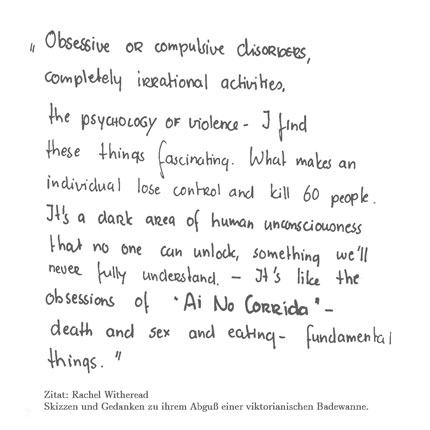 „Obsessive or compulsive disorders,
completely irrational activities,
the psychology of violence - I find
these things fascinating. What makes an
individual lose control and kill 60 people.
It's a dark area of human unconsciousness
that no one can unlock, something we'll
never fully understand. - It's like the
obsessions of "Ai No Corrida" -
death and sex and eating - fundamental
things."
Zitat: Rachel Witheread
Skizzen und Gedanken zu ihrem Abguß einer viktorianischen Badewanne.